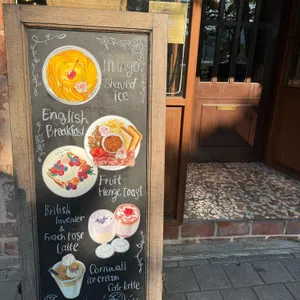 Mango
Shaved
ice
English
Breakfast
Fruit
Henge Toast
British
Lavender
&
French rose
Latte
Cornwall
ice cream
Cafe latte